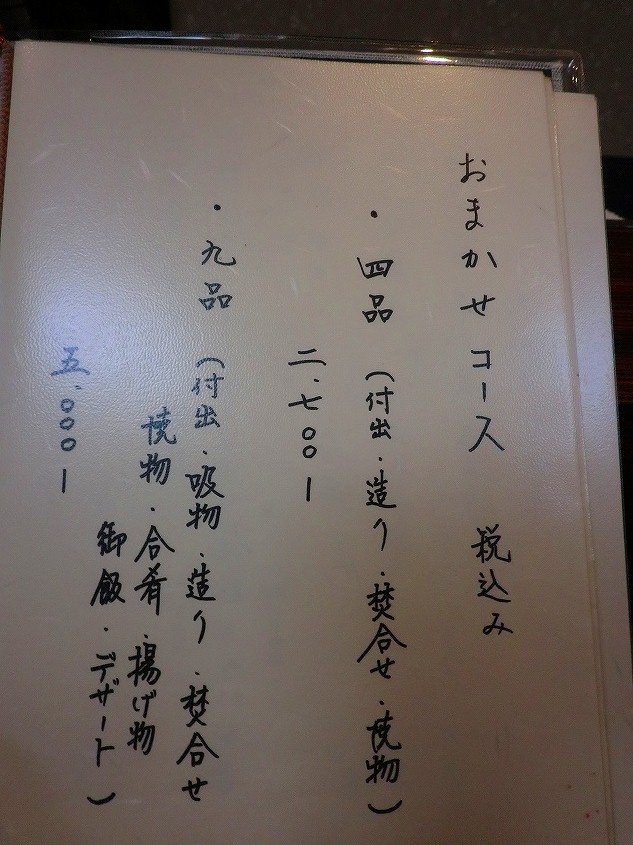 おまかせコース 税込み
・四品 (付出・造り・焚合せ・焼物)
二.七〇〇ー
・九品 (付出・吸物・造り・焚合せ
焼物・合肴・揚げ物
御飯・デザート)
五.〇〇〇ー